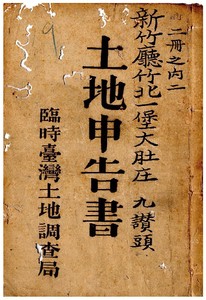 二冊之內二
新竹廳竹北一堡大肚庄 九讃頭
土地申告書
臨時臺灣土地調查局